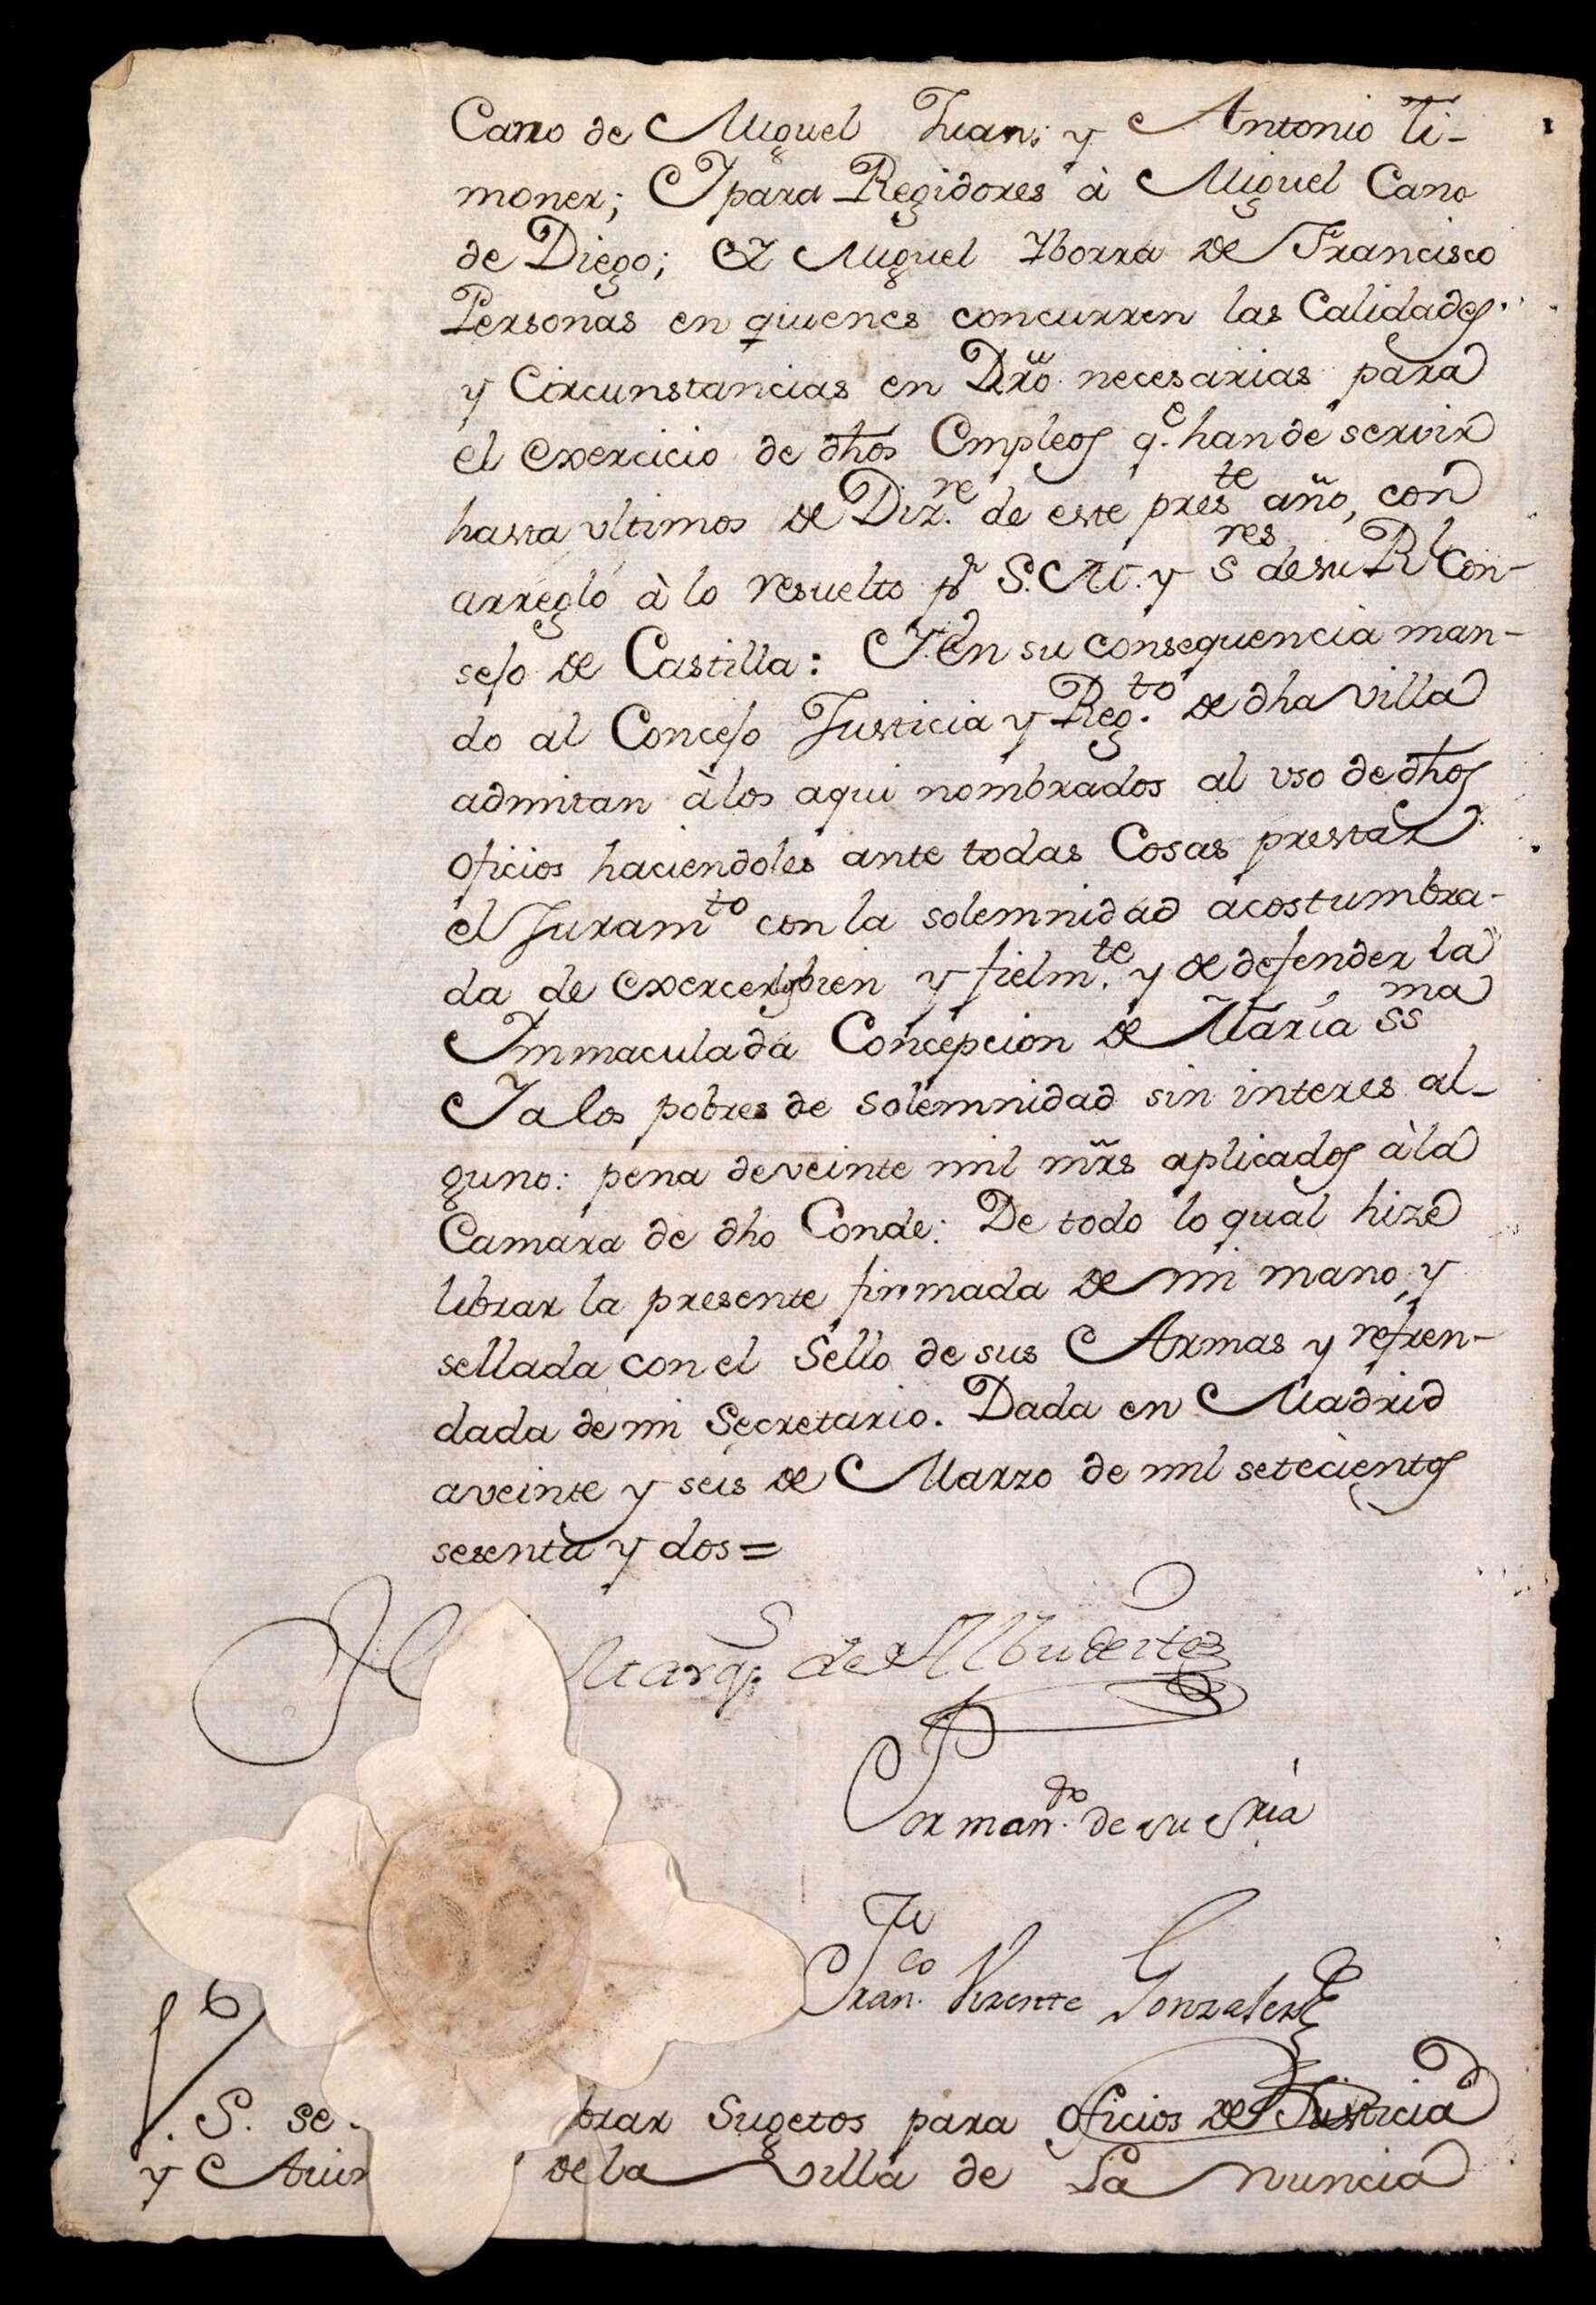 Cano de Miguel Juan; y Antonio Ti-
moner; Y para Regidores à Miguel Cano
de Diego; Et Miguel Yborra de Francisco
Personas en quienes concurren las Calidades
y Circunstancias en Dr̃o necesarias para
el exercicio de dhos Empleos q.e han de servir
hasta vltimos de Diz.re de este pres.te año, con
arreglo à lo resuelto pr S. M. y S.res de su Rl Con-
sejo de Castilla: Y en su consequencia man-
do al Concejo Justicia y Reg.to de dha villa
admitan à los aqui nombrados al vso de dhos
oficios haciendoles ante todas Cosas prestar
el Juram.to con la solemnidad acostumbra-
da de exercerlos bien y fielm.te y de defender la
Immaculada Concepcion de María SS.ma
Y a los pobres de solemnidad sin interes al-
guno: pena de veinte mil mr̃s aplicados à la
Camara de dho Conde: De todo lo qual hize
librar la presente firmada de mi mano, y
sellada con el Sello de sus Armas y refren-
dada de mi Secretario. Dada en Madrid
a veinte y seis de Marzo de mil setecientos
sesenta y dos=
Marq.s de Albudeite
Por man.do de su Sria
Fran.co Vizente Gonzalez
V. S. se brar Sugetos para oficios de Justicia
y de la villa de La Nuncia